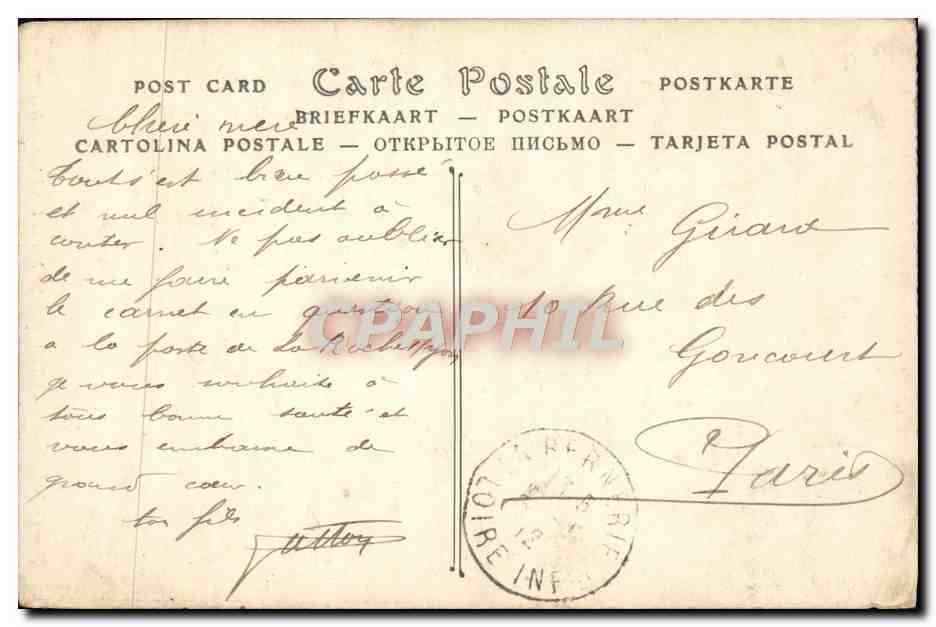 POST CARD Carte Postale POSTKARTE
BRIEFKAART — POSTKAART
CARTOLINA POSTALE — ОТКРЫТОЕ ПИСЬМО — TARJETA POSTAL
Cheré mere
Tout s'est bien passé
et nul incident à
conter. Ne pas oublier
de me faire parvenir
le carnet en question
a la poste de La Roche
je vous souhaite à
tous bonne santé et
vous embrasse de
grand cœur.
ton fils
Mme Girard
10 Rue des
Goncourt
Paris
LA BERNERIE
LOIRE INF
CPAPHIL